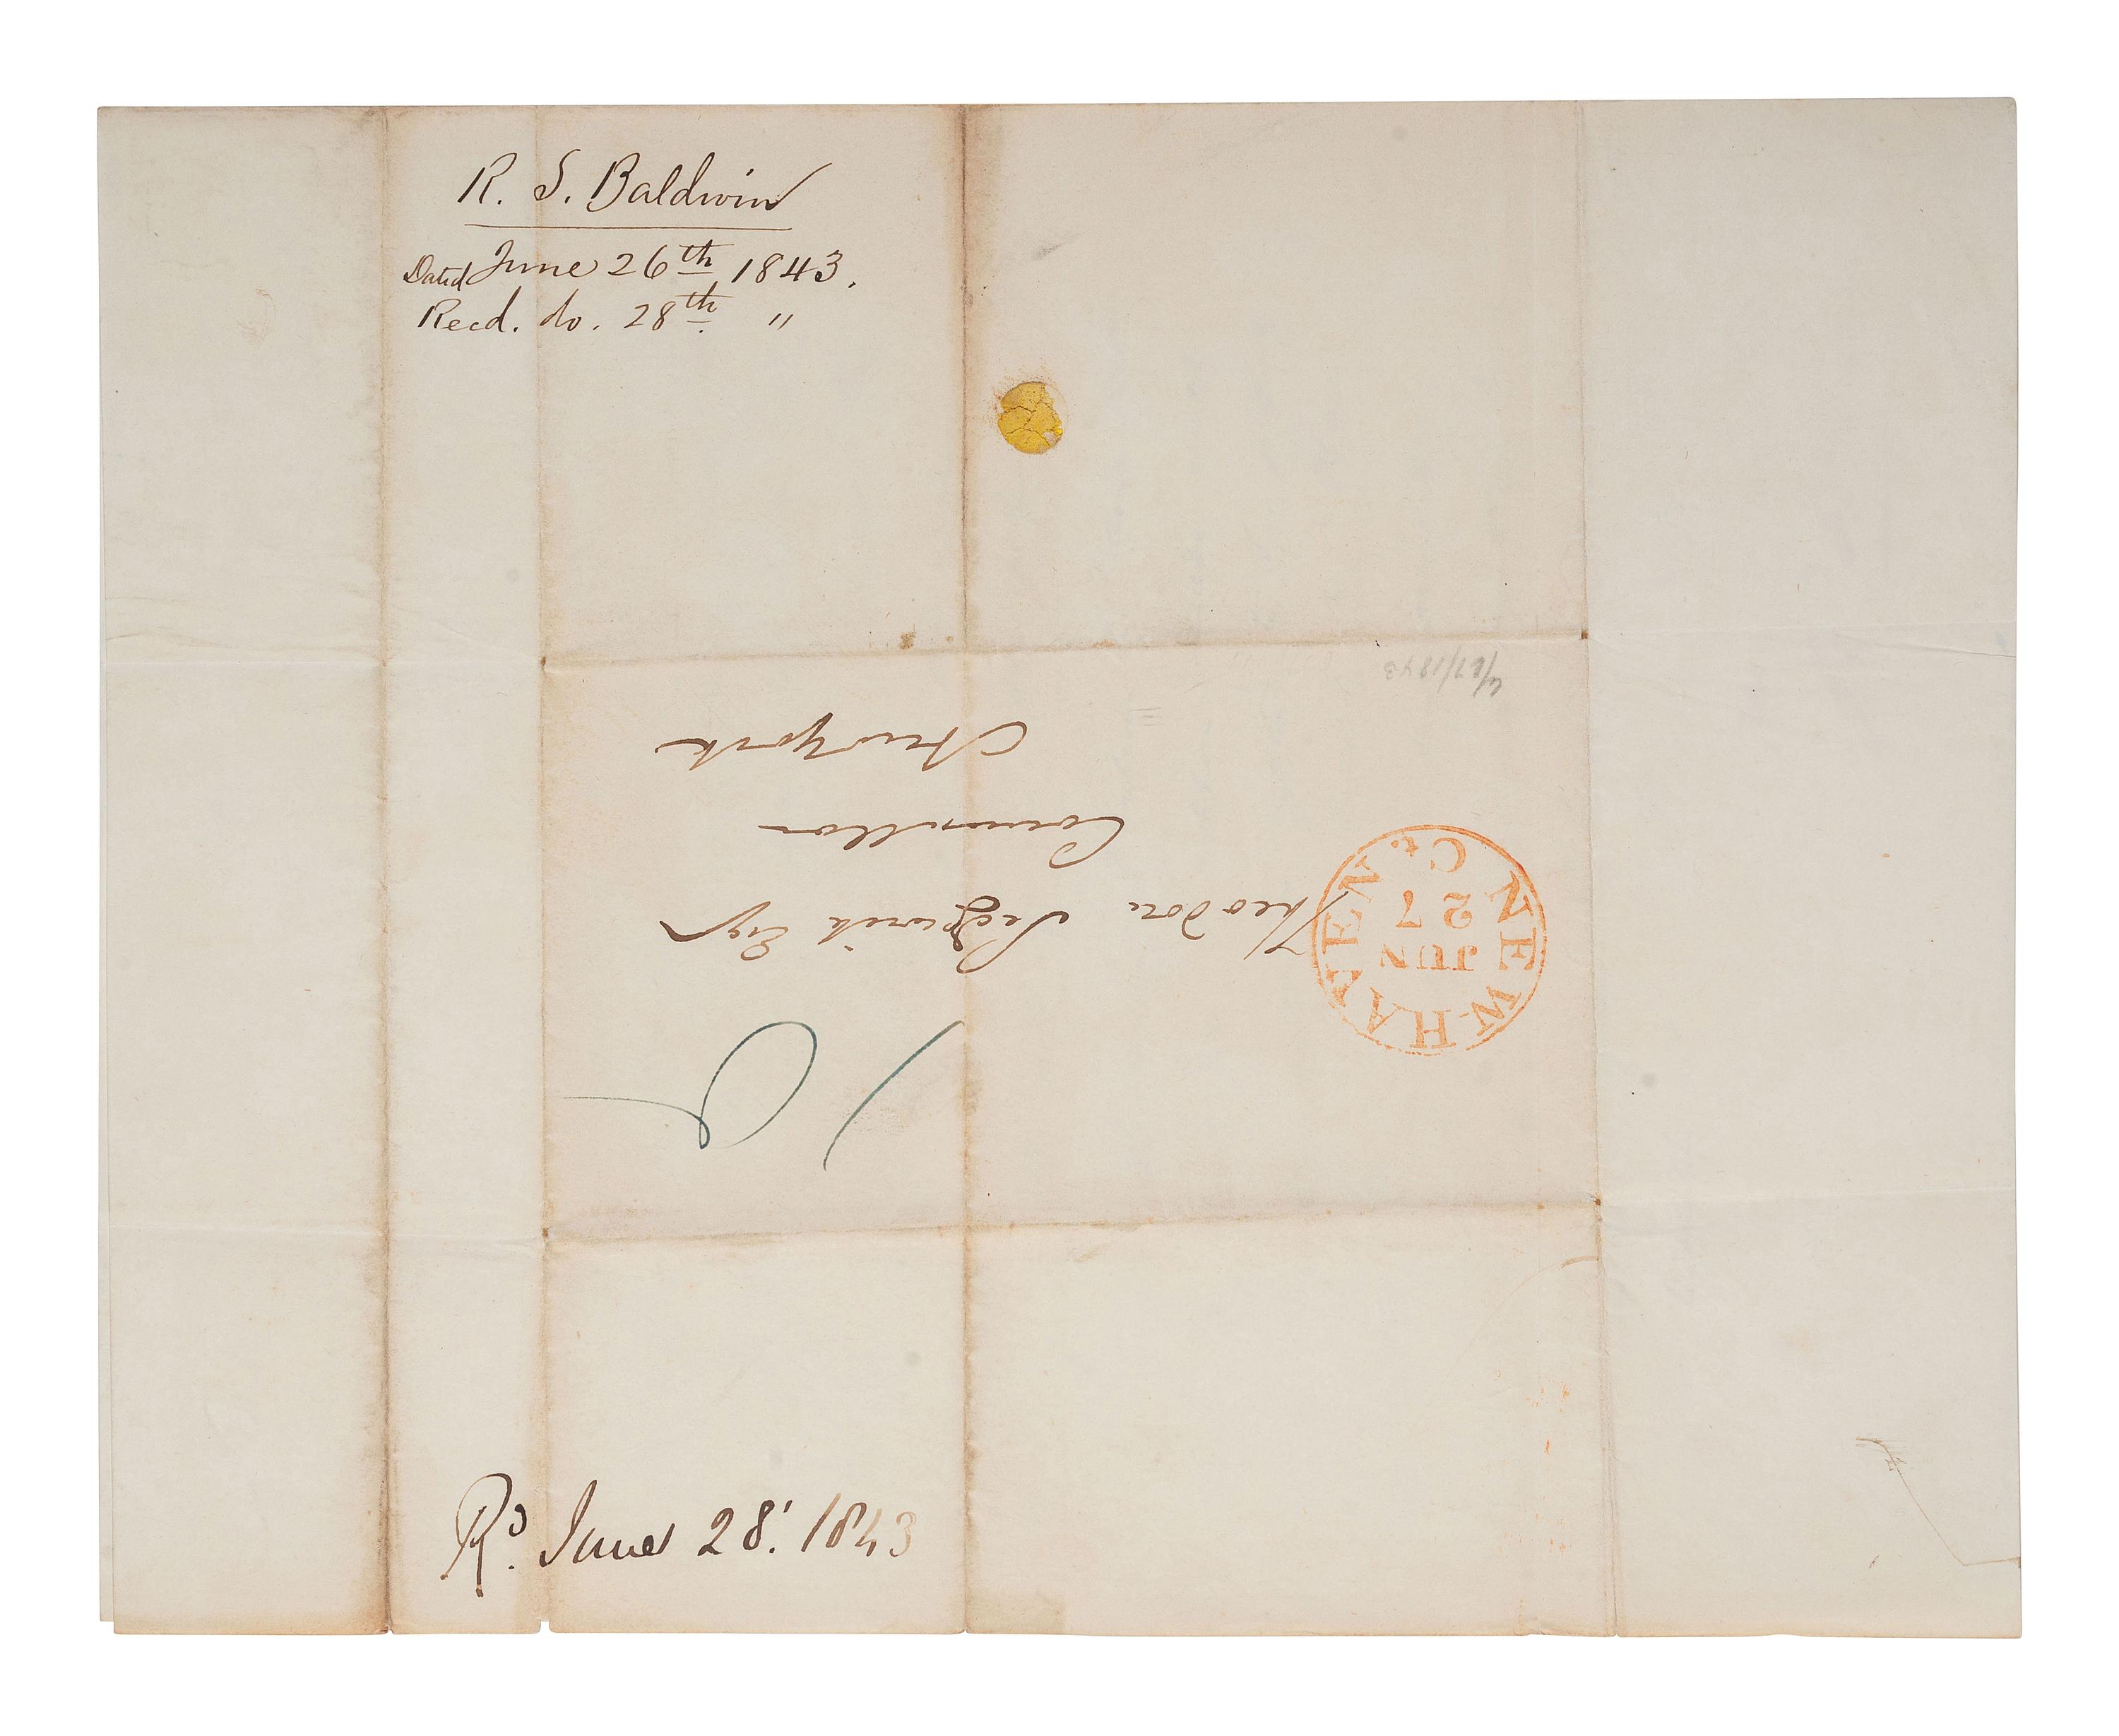 R. S. Baldwin
Dated June 26th 1843.
Recd. do. 28th "
6/27/1843
NEW-HAVEN
Ct.
JUN
27
Theodore Sedgwick Esqr
Counsellor
New York
Rd. June 28. 1843